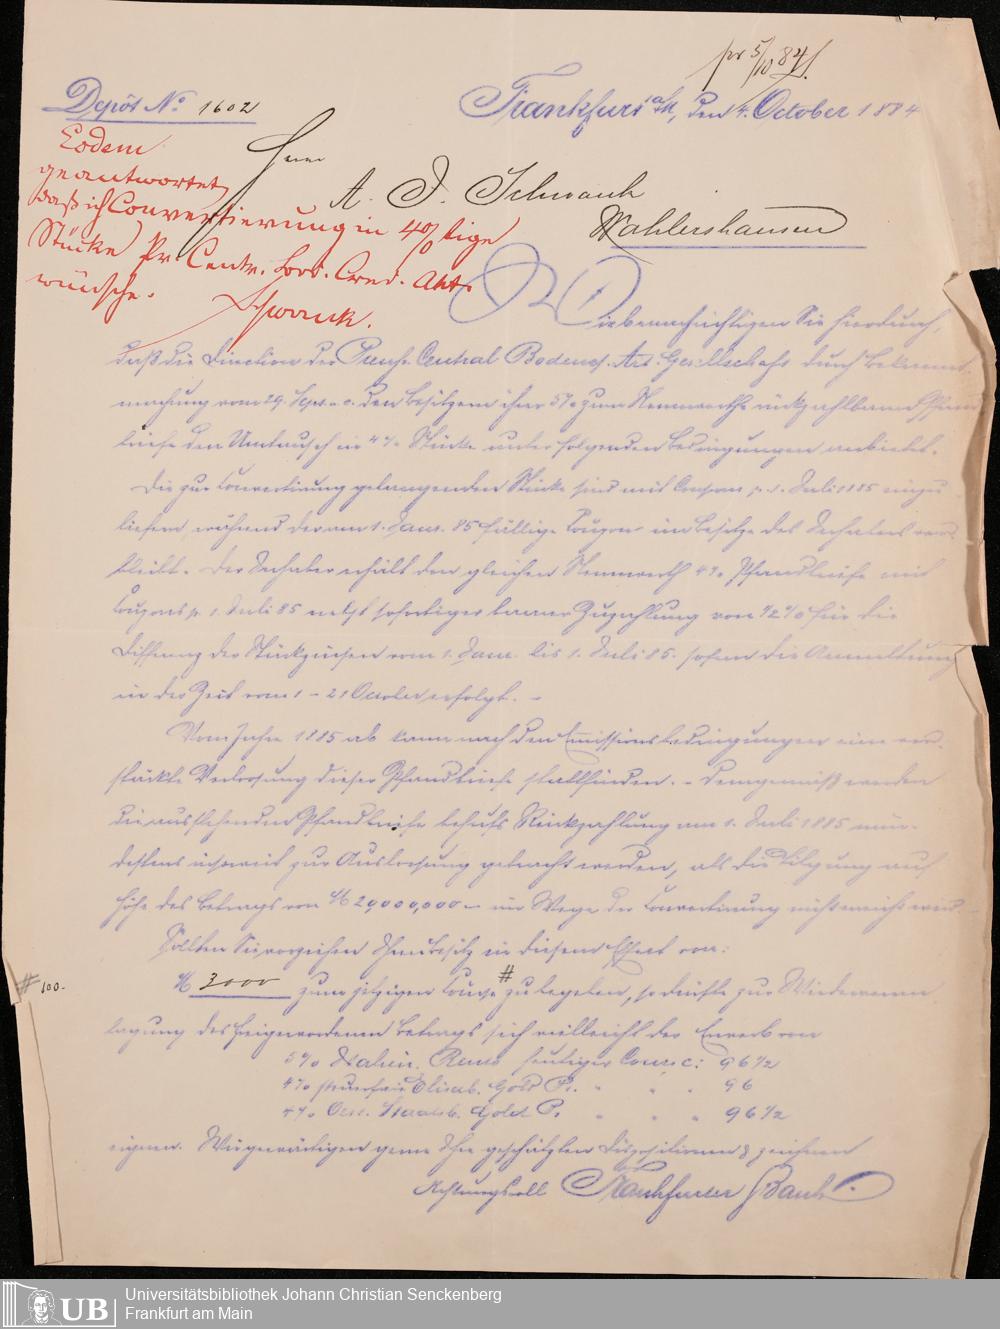 pr 5/10 84
Depôt No. 1602
Frankfurt a/M, den 4. October 1884
Herrn
A. J. Schwank
Wahlershausen
Eodem
geantwortet,
daß ich Convertierung in 4% tige
Stücke Pr. Centr. Bod. Cred. Akt.
wünsche.
Schwank.
Wir benachrichtigen Sie hierdurch,
daß die Direction der Preuss. Central Bodencr. Act. Gesellschaft durch Bekannt-
machung vom 29. Sept. a. c. den Besitzern ihrer 5% zum Nennwerthe rückzahlbaren Pfand-
briefe den Umtausch in 4% Stücke unter folgenden Bedingungen anbietet.
Die zur Convertirung gelangenden Stücke sind mit Coupon p. 1. Juli 1885 einzu-
liefern, während der am 1. Janr. 85 fällige Coupon im Besitze des Inhabers ver-
bleibt. Der Inhaber erhält den gleichen Nennwerth 4% Pfandbriefe mit
Coupons p. 1. Juli 85 nebst sofortiger baarer Zuzahlung von 1/2% für die
Differenz der Stückzinsen vom 1. Janr. bis 1. Juli 85. sofern die Anmeldung
in der Zeit vom 1 - 21 October erfolgt. -
Vom Jahre 1885 ab kann nach den Emissionsbedingungen eine ver-
stärkte Verloosung dieser Pfandbriefe stattfinden. - Demgemäß werden
die ausstehenden Pfandbriefe behufs Rückzahlung am 1. Juli 1885 min-
destens insoweit zur Ausloosung gebracht werden, als die Tilgung auf
Höhe des Betrags von M 20,000,000 - im Wege der Convertirung nicht erreicht wird. -
Sollten Sie vorziehen Ihren Besitz in diesem Effect von:
# 100.-
M 3000 zum jetzigen Course # zu begeben, so dürfte zur Wiederveran-
lagung des freigewordenen Betrags sich vielleicht der Erwerb von
5% Italien. Rente heutiger Cours c: 96 1/2
4% steuerfreie Elisab. Gold P. " " " 96
4% Oest. Staatsb. Gold P. " " " 96 1/2
eignen. Wir gewärtigen gerne Ihre geschätzten Dispositionen & zeichnen
Achtungsvoll Frankfurter Bank.
UB
Universitätsbibliothek Johann Christian Senckenberg
Frankfurt am Main